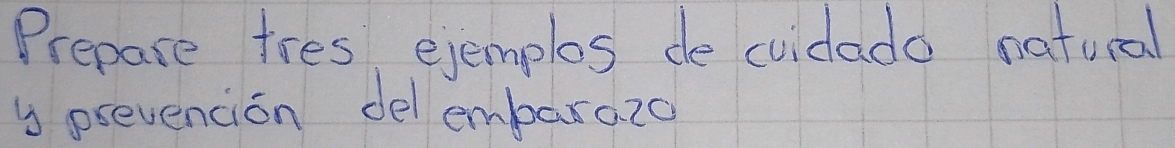 Prepare tres ejemplos de cuidado natural
y prevención del embarazo